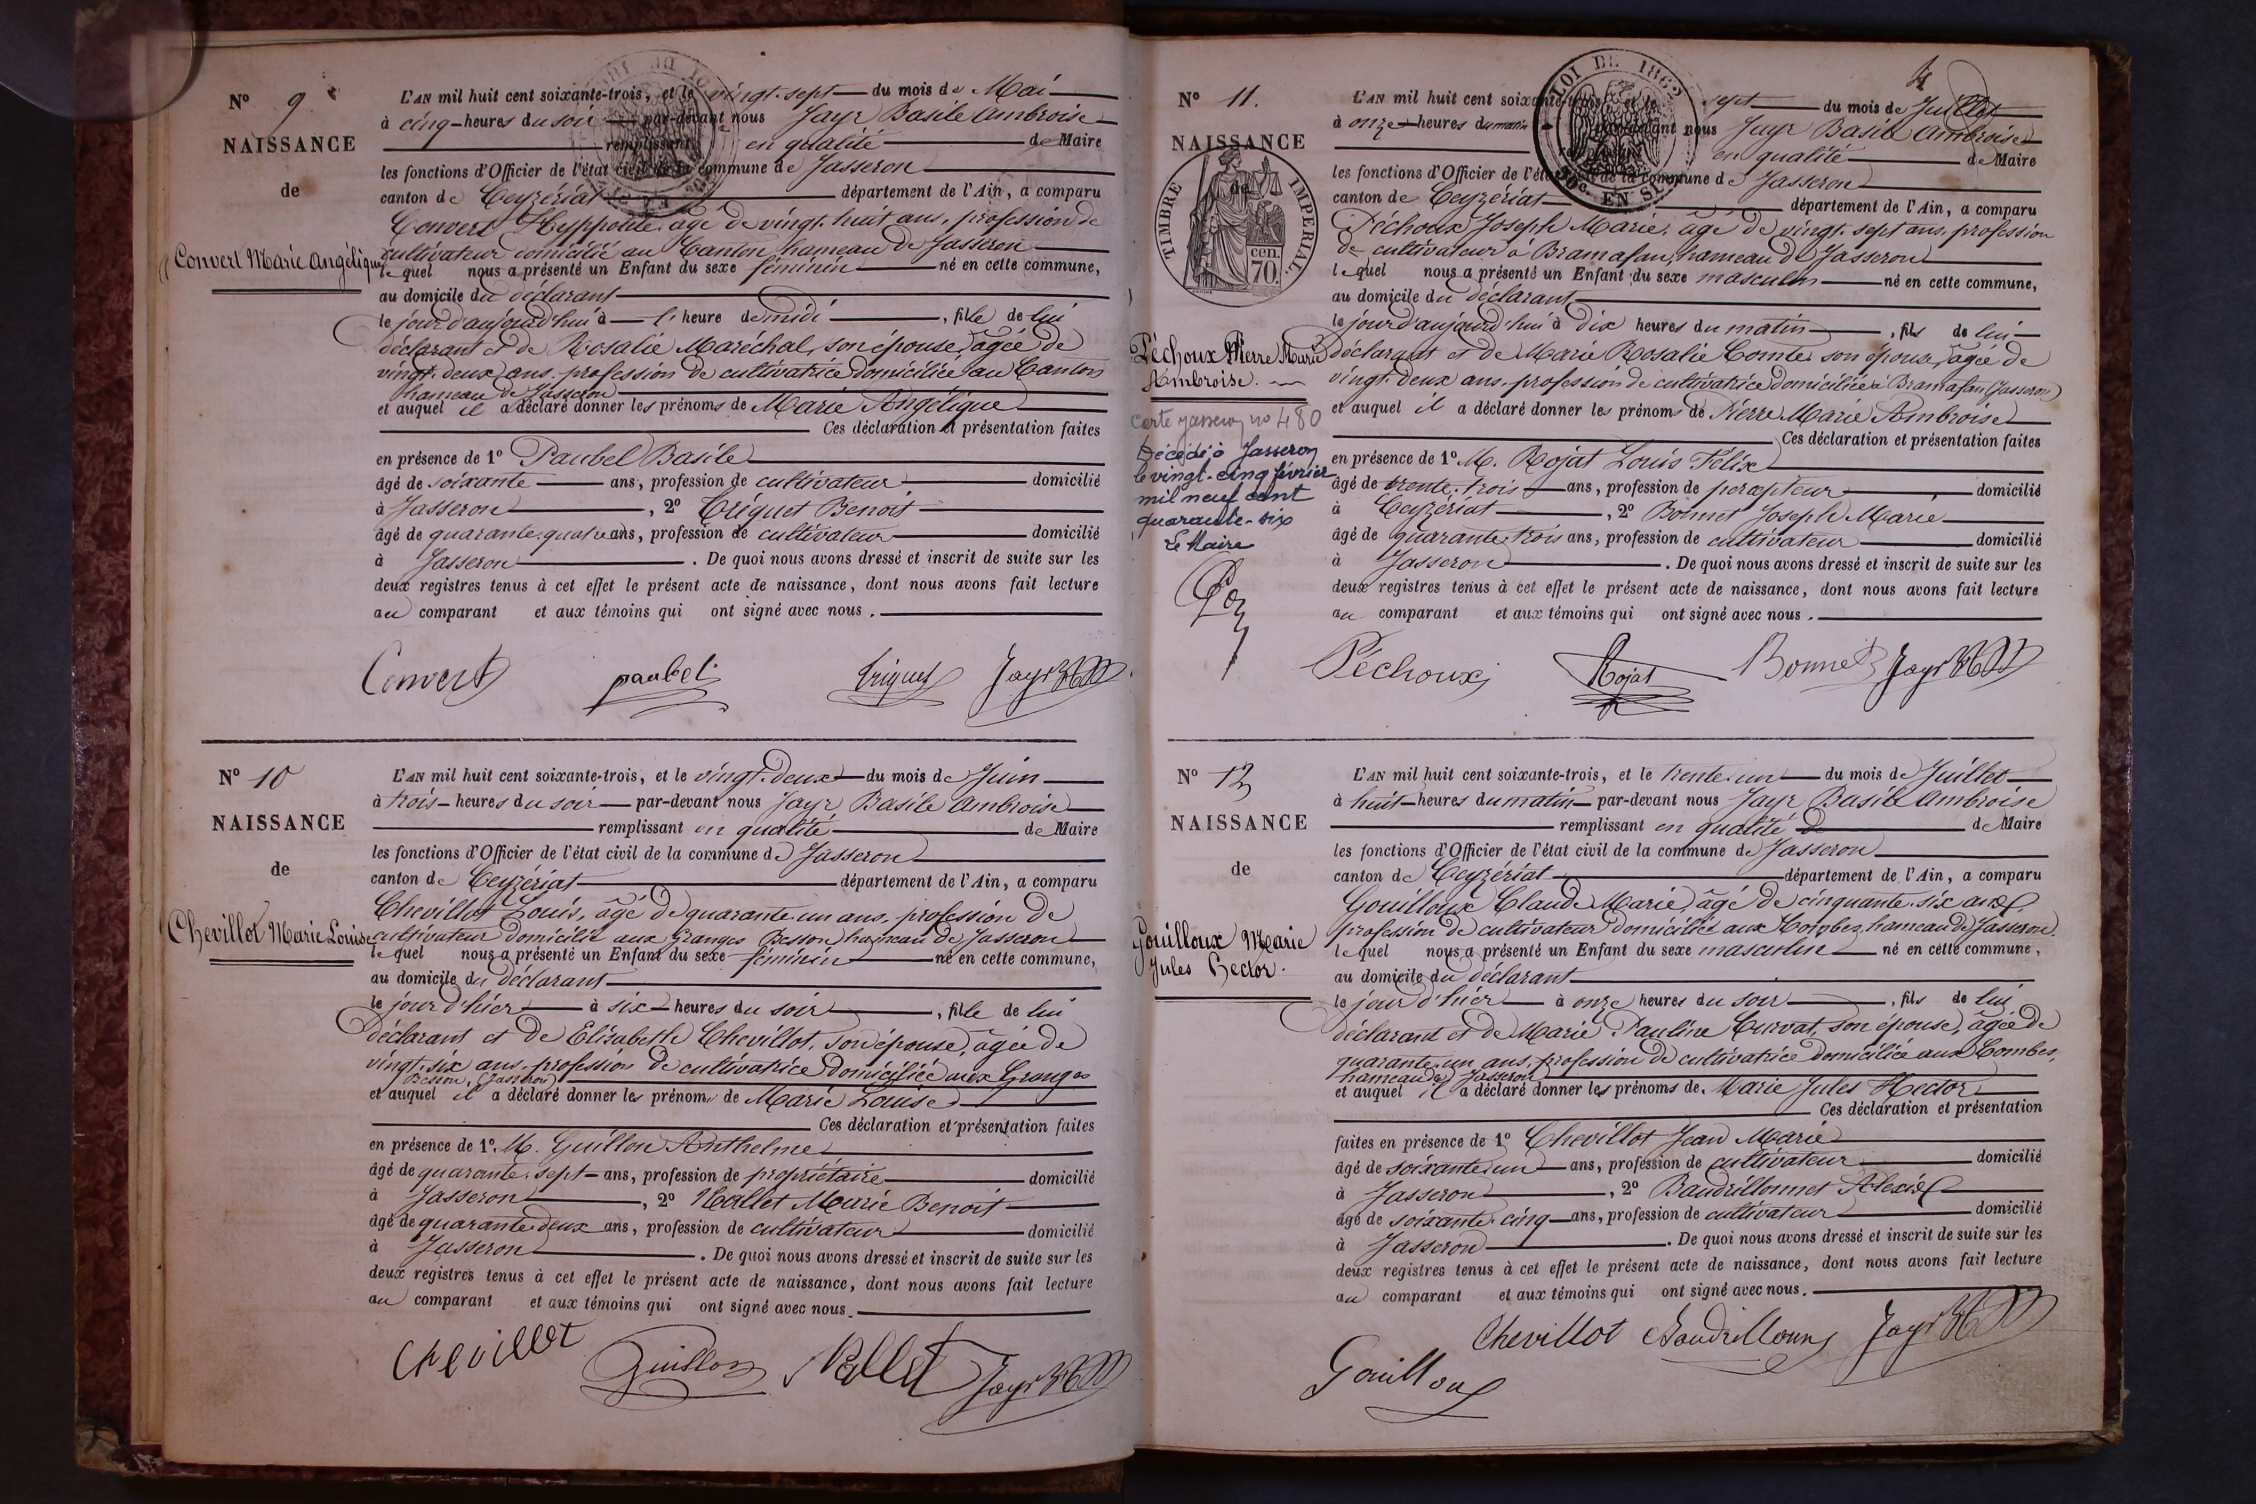 N° 9
NAISSANCE
de
Convert Marie Angélique
L'AN mil huit cent soixante-trois, et le vingt-sept du mois de Mai
à cinq heures du soir par-devant nous Jayr Basile Ambroise
remplissant en qualité de Maire
les fonctions d'Officier de l'état civil de la commune de Jasseron
canton de Ceyzériat département de l'Ain, a comparu
Convert Hyppolite âgé de vingt-huit ans, profession de
cultivateur domicilié au Canton hameau de Jasseron
lequel nous a présenté un Enfant du sexe féminin né en cette commune,
au domicile du déclarant
le jour d'aujourd'hui à l'heure de midi, fille de lui
déclarant et de Rosalie Maréchal, son épouse, âgée de
vingt-deux ans, profession de cultivatrice domiciliée au Canton
hameau de Jasseron
et auquel il a déclaré donner les prénoms de Marie Angélique
Ces déclaration et présentation faites
en présence de 1° Paubel Basile
âgé de soixante ans, profession de cultivateur domicilié
à Jasseron, 2° Tréquet Benoit
âgé de quarante-quatre ans, profession de cultivateur domicilié
à Jasseron. De quoi nous avons dressé et inscrit de suite sur les
deux registres tenus à cet effet le présent acte de naissance, dont nous avons fait lecture
au comparant et aux témoins qui ont signé avec nous.
Convert paubel Jayr
N° 10
NAISSANCE
de
Chevillot Marie Louise
L'AN mil huit cent soixante-trois, et le vingt-deux du mois de Juin
à trois heures du soir par-devant nous Jayr Basile Ambroise
remplissant en qualité de Maire
les fonctions d'Officier de l'état civil de la commune de Jasseron
canton de Ceyzériat département de l'Ain, a comparu
Chevillot Louis, âgé de quarante-un ans, profession de
cultivateur domicilié aux Granges Besson hameau de Jasseron
lequel nous a présenté un Enfant du sexe féminin né en cette commune,
au domicile du déclarant
le jour d'hier à six heures du soir, fille de lui
déclarant et de Elisabeth Chevillot, son épouse, âgée de
vingt-six ans, profession de cultivatrice domiciliée aux Granges
Besson, (Jasseron)
et auquel il a déclaré donner les prénoms de Marie Louise
Ces déclaration et présentation faites
en présence de 1°. M. Guillon Anthelme
âgé de quarante-sept ans, profession de propriétaire domicilié
à Jasseron, 2° Nallet Marie Benoit
âgé de quarante-deux ans, profession de cultivateur domicilié
à Jasseron. De quoi nous avons dressé et inscrit de suite sur les
deux registres tenus à cet effet le présent acte de naissance, dont nous avons fait lecture
au comparant et aux témoins qui ont signé avec nous.
Chevillot Guillon Nallet Jayr
4
LOI DE 1862
EN SUS
TIMBRE IMPERIAL
70 cen.
N° 11.
NAISSANCE
de
Péchoux Pierre Marie
Ambroise.
carte jasseron no 480
Décédé à Jasseron
le vingt-cinq février
mil neuf cent
quarante-six
Le Maire
L'AN mil huit cent soixante-trois, et le sept du mois de Juillet
à onze heures du matin par-devant nous Jayr Basile Ambroise
remplissant en qualité de Maire
les fonctions d'Officier de l'état civil de la commune de Jasseron
canton de Ceyzériat département de l'Ain, a comparu
Péchoux Joseph Marie, âgé de vingt-sept ans, profession
de cultivateur à Bramafan, hameau de Jasseron
lequel nous a présenté un Enfant du sexe masculin né en cette commune,
au domicile du déclarant
le jour d'aujourd'hui à dix heures du matin, fils de lui
déclarant et de Marie Rosalie Comte son épouse, âgée de
vingt-deux ans, profession de cultivatrice domiciliée à Bramafan (Jasseron)
et auquel il a déclaré donner les prénoms de Pierre Marie Ambroise
Ces déclaration et présentation faites
en présence de 1°. M. Rojat Louis Félix
âgé de trente-trois ans, profession de percepteur domicilié
à Ceyzériat, 2° Bonnet Joseph Marie
âgé de quarante-trois ans, profession de cultivateur domicilié
à Jasseron. De quoi nous avons dressé et inscrit de suite sur les
deux registres tenus à cet effet le présent acte de naissance, dont nous avons fait lecture
au comparant et aux témoins qui ont signé avec nous.
Péchoux Rojat Bonnet Jayr
N° 12
NAISSANCE
de
Gouilloux Marie
Jules Hector.
L'AN mil huit cent soixante-trois, et le trente-un du mois de Juillet
à huit heures du matin par-devant nous Jayr Basile Ambroise
remplissant en qualité de Maire
les fonctions d'Officier de l'état civil de la commune de Jasseron
canton de Ceyzériat département de l'Ain, a comparu
Gouilloux Claude Marie âgé de cinquante-six ans
profession de cultivateur domicilié aux Combes, hameau de Jasseron.
lequel nous a présenté un Enfant du sexe masculin né en cette commune,
au domicile du déclarant
le jour d'hier à onze heures du soir, fils de lui
déclarant et de Marie Pauline Curvat, son épouse, âgée de
quarante-un ans, profession de cultivatrice domiciliée aux Combes,
hameau de Jasseron
et auquel il a déclaré donner les prénoms de Marie Jules Hector
Ces déclaration et présentation
faites en présence de 1° Chevillot Jean Marie
âgé de soixante-un ans, profession de cultivateur domicilié
à Jasseron, 2° Baudrillonnet Alexis
âgé de soixante-cinq ans, profession de cultivateur domicilié
à Jasseron. De quoi nous avons dressé et inscrit de suite sur les
deux registres tenus à cet effet le présent acte de naissance, dont nous avons fait lecture
au comparant et aux témoins qui ont signé avec nous.
Chevillot Jayr
Gouilloux